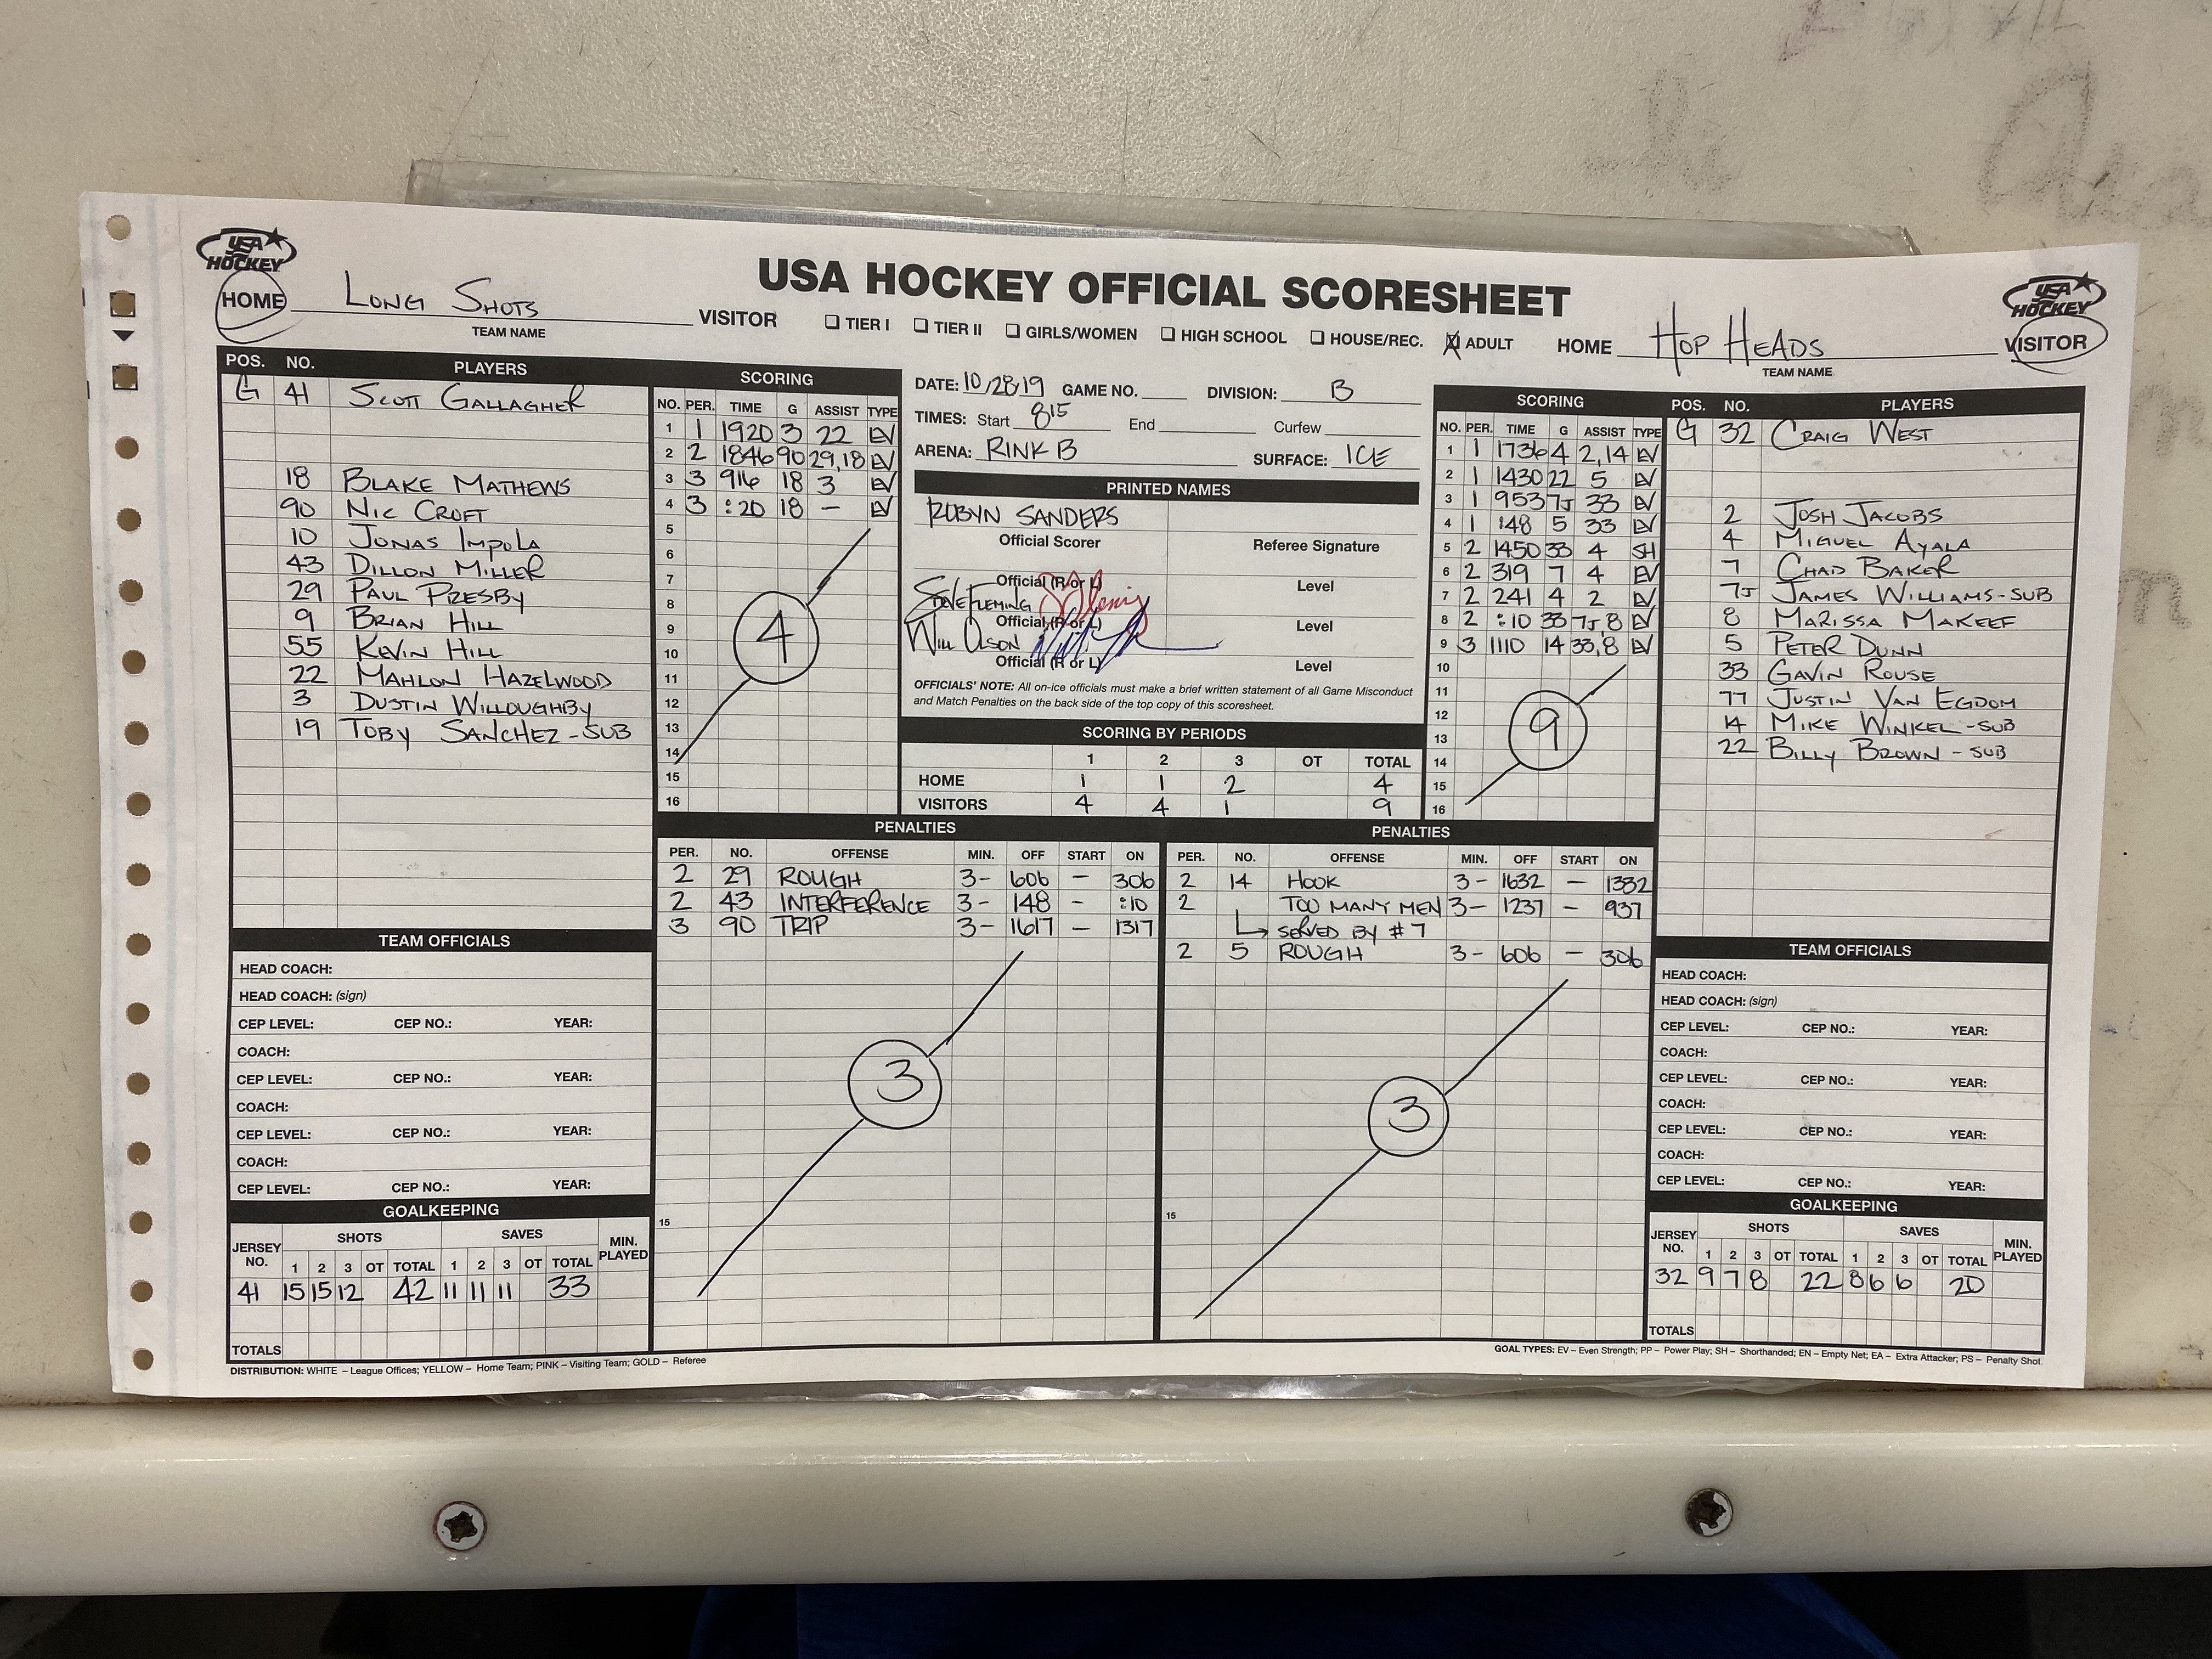 USA HOCKEY
USA HOCKEY OFFICIAL SCORESHEET
USA HOCKEY
HOME Long Shots VISITOR
TEAM NAME
❑ TIER I ❑ TIER II ❑ GIRLS/WOMEN ❑ HIGH SCHOOL ❑ HOUSE/REC. X ADULT
HOME Hop Heads VISITOR
TEAM NAME
POS. NO. PLAYERS
G 41 Scott Gallagher
18 Blake Mathews
90 Nic Croft
10 Jonas Impola
43 Dillon Miller
29 Paul Presby
9 Brian Hill
55 Kevin Hill
22 Mahlon Hazelwood
3 Dustin Willoughby
19 Toby Sanchez - SUB
SCORING
NO. PER. TIME G ASSIST TYPE
1 1 1920 3 22 EV
2 2 1846 90 29,18 EV
3 3 916 18 3 EV
4 3 :20 18 - EV
5
6
7
8
9
10
11
12
13
14
15
16
4
DATE: 10/28/19 GAME NO. DIVISION: B
TIMES: Start 815 End Curfew
ARENA: RINK B SURFACE: ICE
PRINTED NAMES
ROBYN SANDERS
Official Scorer Referee Signature
Official (R or L) Level
STEVE FLEMING
Official (R or L) Level
Will Olson
Official (R or L) Level
OFFICIALS' NOTE: All on-ice officials must make a brief written statement of all Game Misconduct
and Match Penalties on the back side of the top copy of this scoresheet.
SCORING BY PERIODS
1 2 3 OT TOTAL
HOME 1 1 2 4
VISITORS 4 4 1 9
SCORING
NO. PER. TIME G ASSIST TYPE
1 1 1736 4 2,14 EV
2 1 1430 22 5 EV
3 1 953 7J 33 EV
4 1 :48 5 33 EV
5 2 1450 33 4 SH
6 2 319 7 4 EV
7 2 241 4 2 EV
8 2 :10 33 7J,8 EV
9 3 1110 14 33,8 EV
10
11
12
13
14
15
16
9
POS. NO. PLAYERS
G 32 Craig West
2 Josh Jacobs
4 Miguel Ayala
7 Chad Baker
7J James Williams - SUB
8 Marissa Makeef
5 Peter Dunn
33 Gavin Rouse
77 Justin Van Egdom
14 Mike Winkel - SUB
22 Billy Brown - SUB
PENALTIES
PER. NO. OFFENSE MIN. OFF START ON
2 29 ROUGH 3- 606 - 306
2 43 INTERFERENCE 3- 148 - :10
3 90 TRIP 3- 1617 - 1317
3
15
PENALTIES
PER. NO. OFFENSE MIN. OFF START ON
2 14 HOOK 3- 1632 - 1332
2 TOO MANY MEN 3- 1237 - 937
↳ SERVED BY #7
2 5 ROUGH 3- 606 - 306
3
15
TEAM OFFICIALS
HEAD COACH:
HEAD COACH: (sign)
CEP LEVEL: CEP NO.: YEAR:
COACH:
CEP LEVEL: CEP NO.: YEAR:
COACH:
CEP LEVEL: CEP NO.: YEAR:
COACH:
CEP LEVEL: CEP NO.: YEAR:
TEAM OFFICIALS
HEAD COACH:
HEAD COACH: (sign)
CEP LEVEL: CEP NO.: YEAR:
COACH:
CEP LEVEL: CEP NO.: YEAR:
COACH:
CEP LEVEL: CEP NO.: YEAR:
COACH:
CEP LEVEL: CEP NO.: YEAR:
GOALKEEPING
JERSEY NO. SHOTS SAVES MIN. PLAYED
1 2 3 OT TOTAL 1 2 3 OT TOTAL
41 15 15 12 42 11 11 11 33
TOTALS
GOALKEEPING
JERSEY NO. SHOTS SAVES MIN. PLAYED
1 2 3 OT TOTAL 1 2 3 OT TOTAL
32 9 7 8 22 8 6 6 20
TOTALS
DISTRIBUTION: WHITE – League Offices; YELLOW – Home Team; PINK – Visiting Team; GOLD – Referee
GOAL TYPES: EV – Even Strength; PP – Power Play; SH – Shorthanded; EN – Empty Net; EA – Extra Attacker; PS – Penalty Shot